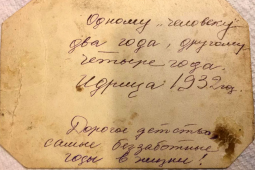 Одному человеку
два года, другому
четыре года.
Идрица 1939 год
Дорогое детство,
самые беззаботные
годы в жизни!